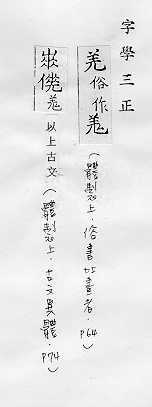 字學三正
羌俗作羗（體製上．俗書加畫者．P64）
以上古文（體製上．古文異體．P74）